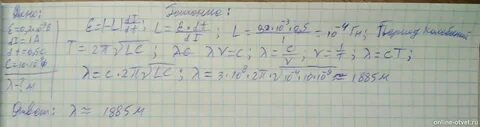 Дано:
ε=0,2·10⁻³В
dI=1А
dt=0,5с
C=10·10⁻⁹Ф
λ-?м
Решение:
ε=|-L| dI/dt; L = ε·dt/dI; L = 0,2·10⁻³·0,5/1 = 10⁻⁴ Гн; Период колебаний
T=2π√LC; λν=c; λ=c/ν, ν=1/T; λ=cT;
λ=c·2π√LC; λ=3·10⁸·2π·√10⁻⁴·10·10⁻⁹ ≈ 1885 м
Ответ: λ ≈ 1885 м
online-otvet.ru